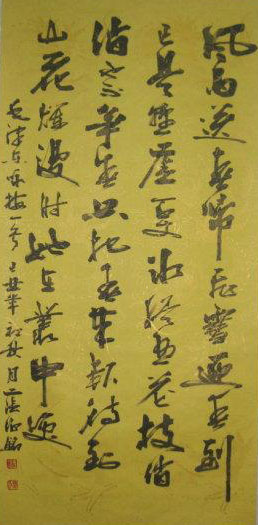 風雨送春歸飛雪迎春到
已是懸崖百丈冰猶有花枝俏
俏也不爭春只把春來報待到
山花爛漫时她在叢中笑
毛泽东咏梅一首 己丑年初秋月